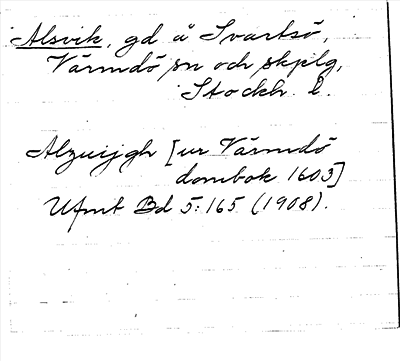 Alsvik, gd å Svartsö,
Värmdö sn och skplg,
Stockh. l.
Alzuijgh [ur Värmdö
dombok 1603]
Ufmt Bd 5:165 (1908).